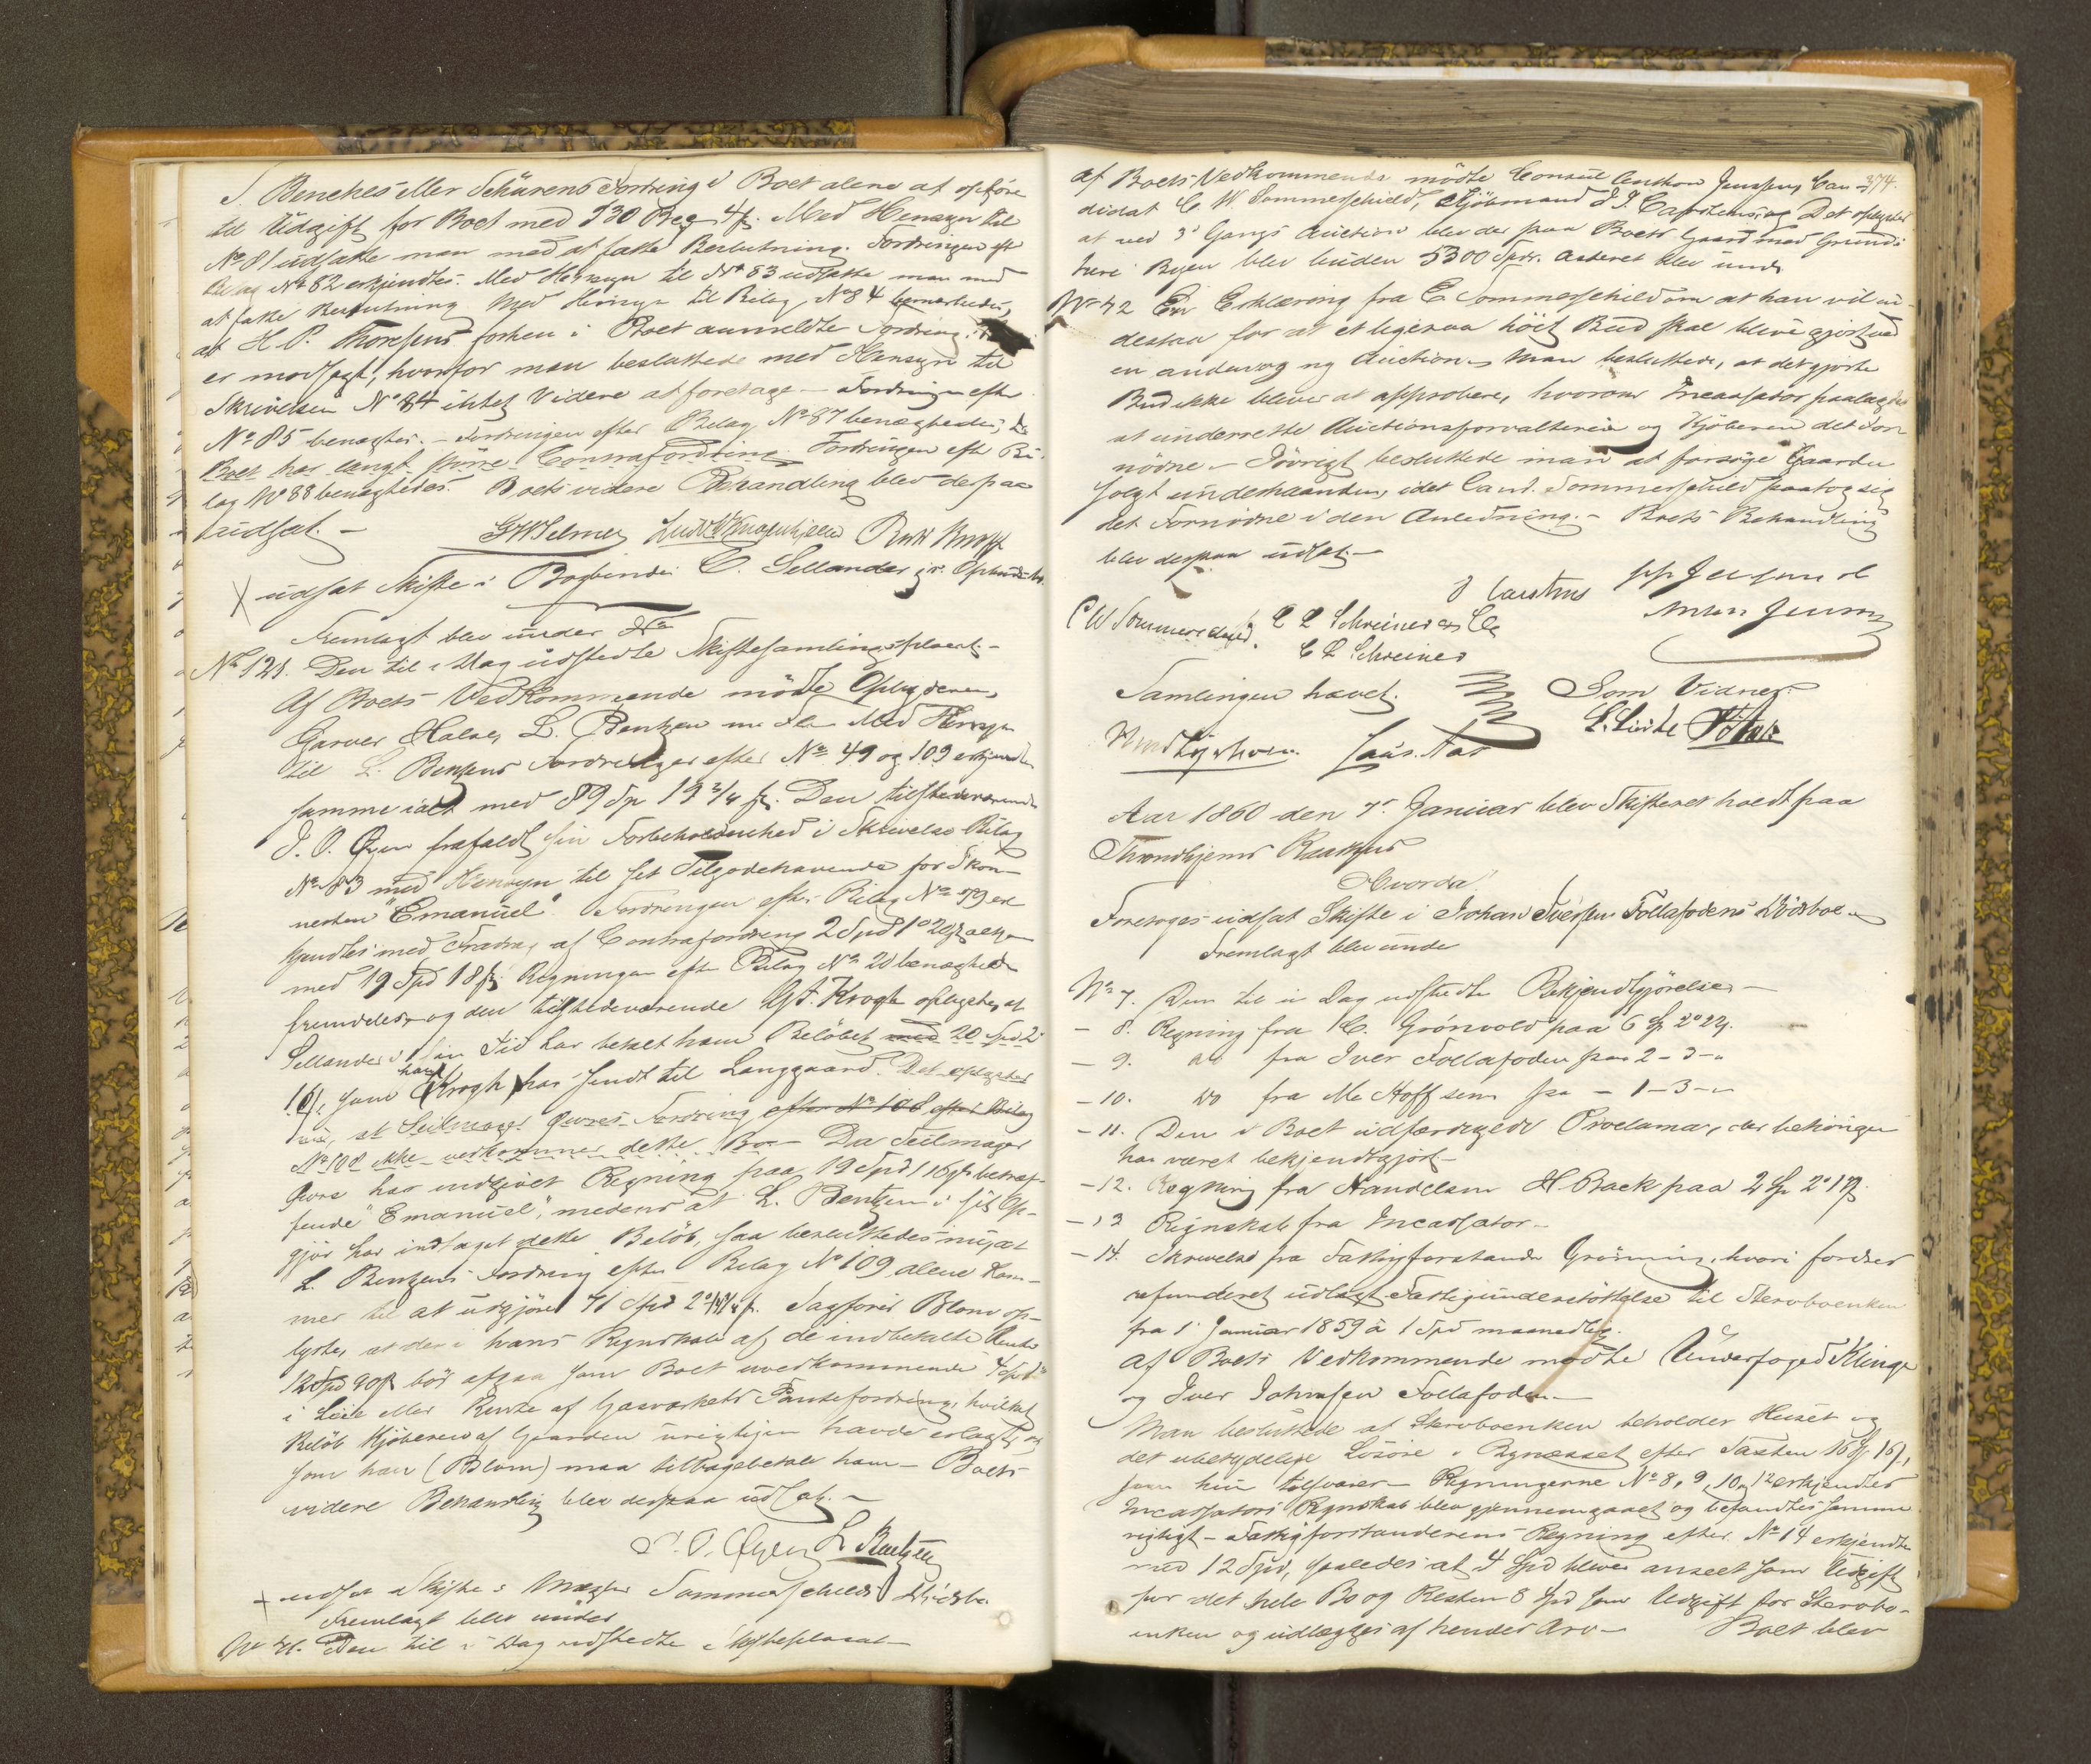 S. Benches eller Schürens Fordring i Boet alene at opføre
til Udgift for Boet med 530 Beg 4 ß. Med Hensyn til
No 81 udsatte man med at fatte Beslutning. Fordringen efter
Bilag No 82 erkjendtes. Med Hensyn til No 83 udsatte man med
at fatte Beslutning Med Hensyn til Bilag No 84 bemærkedes,
at H. P. Thoresens forhen i Boet anmeldte Fordring
er modsagt, hvorfor man besluttede med Hensyn til
Skrivelsen No 84 intet Videre at foretage – Fordringen efter
No 85 benægtes. – Fordringen efter Bilag No 87 benægtedes, da
Boet har langt større Contrafordring. Fordringen efter Bi-
lag No 88 benægtedes. Boets videre Behandling blev derpaa
udsat. –
GWSelmer
udsat Skifte i Bogbinder C. Sellanders Opbudsbo.
Fremlagt blev under No
No 121. Den til i Dag udstedte Skiftesamlingsplacat –
Af Boets Vedkommende mødte Opbyderen,
Garver Halve, L. Bentzen m. Fl. Med Hensyn
til L. Bentzens Fordringer efter No 49 og 109 erkjendtes
samme ialt med 89 Sp 19 ¾ ß. Den tilstedeværende
J. O. Øyen frafaldt sin Forbeholdenhed i Skrivelse Bilag
No 83 med Hensyn til sit Tilgodehavende for Skon-
nerten "Emanuel". Fordringen efter Bilag No 79 er-
kjendtes med Fradrag af Contrafordring 2 Spd 1 o 20 ß altsaa
med 19 Spd 18 ß. Regningen efter Bilag No 20 benægtedes
fremdeles og den tilstedeværende Krogh oplyste, at
Sellander i sin Tid har betalt ham Beløbet med 20 Spd 2
16 ß, som han Krogh har sendt til Langgaard. Det oplystes
at Seilmager Qvres Fordring efter No 108 efter Bilag
No 108 ikke vedkommer dette Bo – Da Seilmager
Qvre har indgivet Regning paa 19 Spd 1 16 ß betræf-
fende "Emanuel", medens at L. Bentzen i sit Op-
gjør har indtaget dette Beløb, saa besluttedes nu at
L. Bentzens Fordring efter Bilag No 109 alene kom-
mer til at udgjøre 71 Spd 2 Sagfører Blom op-
lyste, at der i hans Regnskab af de indbetalte Renter
12 Spd 90 ß bør afgaa som Boet uvedkommende 4 Spd
i Leie eller Rente af Gasværkets Pantefordring, hvilket
Beløb Kjøberen af Gaarden urigtigen havde erlagt, og
som han (Blom) maa tilbagebetale ham – Boets
videre Behandling blev derpaa udsat. –
J. O. Øyen L. Bentzen
udsat Skifte i Mægler Sommerschields Dødsbo.
Fremlagt blev under
No 41. Den til i Dag udstedte Skifteplacat –
374.
af Boets Vedkommende mødte Consul Anthon Jenssen, Can-
didat C. W. Sommerschield, Kjøbmand J. J. Carstens, og Det oplystes
at ved 3die Gangs Auction blev der paa Boets Gaard med Grund
here i Byen blev buden 5300 Spdr. Asteret blev under
No 42 En Erklæring fra C Sommerschield om at han vil in-
destaa for at et ligesaa høit Bud skal blive gjort ved
en anden og ny Auction – Man besluttede, at det gjorte
Bud ikke bliver at approbere, hvorom Incassator paalagdes
at underrette Auctionsforvalteren og Kjøberen det For-
nødne – Iøvrigt besluttede man at forsøge Gaarden
solgt underhaanden, idet Cand. Sommerschield paatog sig
det Fornødne i den Anledning. – Boets Behandling
blev derpaa udsat. –
J Carstens pp Jenssen &
C W Sommerschield. C L Schreiner & Co Anton Jenssen
C L Schreiner
Samlingen hævet. Som Vidner.
L. Linde
Aar 1860 den 7de Januar blev Skifteret holdt paa
Throndhjems Raadhus
Hvorda
Foretoges udsat Skifte i Johan Iversen Follafodens Dødsboe –
Fremlagt blev under
No 7. Den til i Dag udstedte Bekjendtgjørelse –
– 8. Regning fra C. Grønvold paa 6 Sp 2 o 22 ß.
– 9. do fra Iver Follafoden paa 2 – 3 – "
– 10. do fra M. Hoff sen paa – 1 – 3 – "
– 11. Den i Boet udfærdigede Proclama, der behørigen
har været bekjendtgjort –
– 12. Regning fra Handelsm H. Baek paa 2 Sp 2 o 1 ß.
– 13 Regnskab fra Incassator –
– 14. Skrivelse fra Fattigforstander Grønning, hvori fordres
refunderet udlagt Fattigunderstøttelse til Stervboenken
fra 1 Januar 1859 à 1 Spd maanedlig.
Af Boets Vedkommende mødte Underfoged Klinge
og Iver Johnsen Follafoden –
Man besluttede at Stervboenken beholder Huset og
det ubetydelige Løsøre i Bynæsset efter Taxten 16 Sp 16 ß,
som hun tilsvarer – Regningerne No 8, 9, 10 og 12 erkjendtes
Incassators Regnskab blev gjennemgaaet og befandtes samme
rigtigt – Fattigforstanderens Regning efter No 14 erkjendtes
med 12 Spd, saaledes at 4 Spd bliver anseet som Udgift
for det hele Bo og Resten 8 Spd som Udgift for Stervbo-
enken og udlægges af hendes Arv – Boet blev